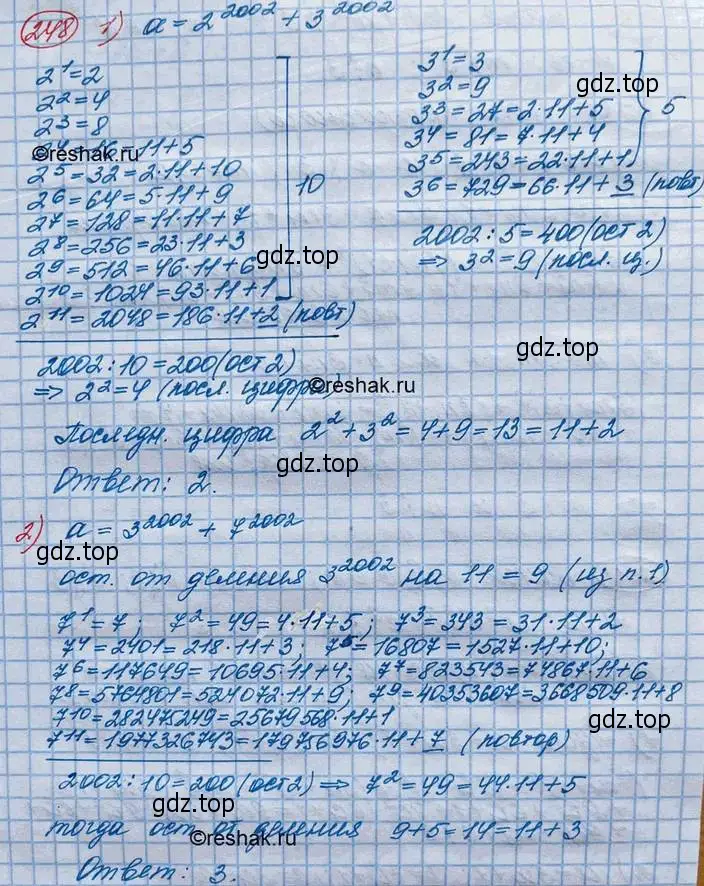 248 1) a = 2^2002 + 3^2002
2^1 = 2
2^2 = 4
2^3 = 8
2^4 = 16 = 11 + 5
2^5 = 32 = 2·11 + 10
2^6 = 64 = 5·11 + 9
2^7 = 128 = 11·11 + 7
2^8 = 256 = 23·11 + 3
2^9 = 512 = 46·11 + 6
2^10 = 1024 = 93·11 + 1
10
2^11 = 2048 = 186·11 + 2 (повт)
2002 : 10 = 200 (ост 2)
⇒ 2^2 = 4 (посл. цифра)
3^1 = 3
3^2 = 9
3^3 = 27 = 2·11 + 5
3^4 = 81 = 7·11 + 4
3^5 = 243 = 22·11 + 1
5
3^6 = 729 = 66·11 + 3 (повт)
2002 : 5 = 400 (ост 2)
⇒ 3^2 = 9 (посл. ц.)
Последн. цифра 2^2 + 3^2 = 4 + 9 = 13 = 11 + 2
Ответ: 2.
2) a = 3^2002 + 7^2002
ост. от деления 3^2002 на 11 = 9 (из п. 1)
7^1 = 7; 7^2 = 49 = 4·11 + 5; 7^3 = 343 = 31·11 + 2
7^4 = 2401 = 218·11 + 3; 7^5 = 16807 = 1527·11 + 10;
7^6 = 117649 = 10695·11 + 4; 7^7 = 823543 = 74867·11 + 6
7^8 = 5764801 = 524072·11 + 9; 7^9 = 40353607 = 3668509·11 + 8
7^10 = 282475249 = 25679568·11 + 1
7^11 = 1977326743 = 179756976·11 + 7 (повтор)
2002 : 10 = 200 (ост 2) ⇒ 7^2 = 49 = 44·11 + 5
тогда ост. от деления 9 + 5 = 14 = 11 + 3
Ответ: 3.
gdz.top
©reshak.ru
gdz.top
gdz.top
©reshak.ru
gdz.top
gdz.top
gdz.top
gdz.top
©reshak.ru
gdz.top